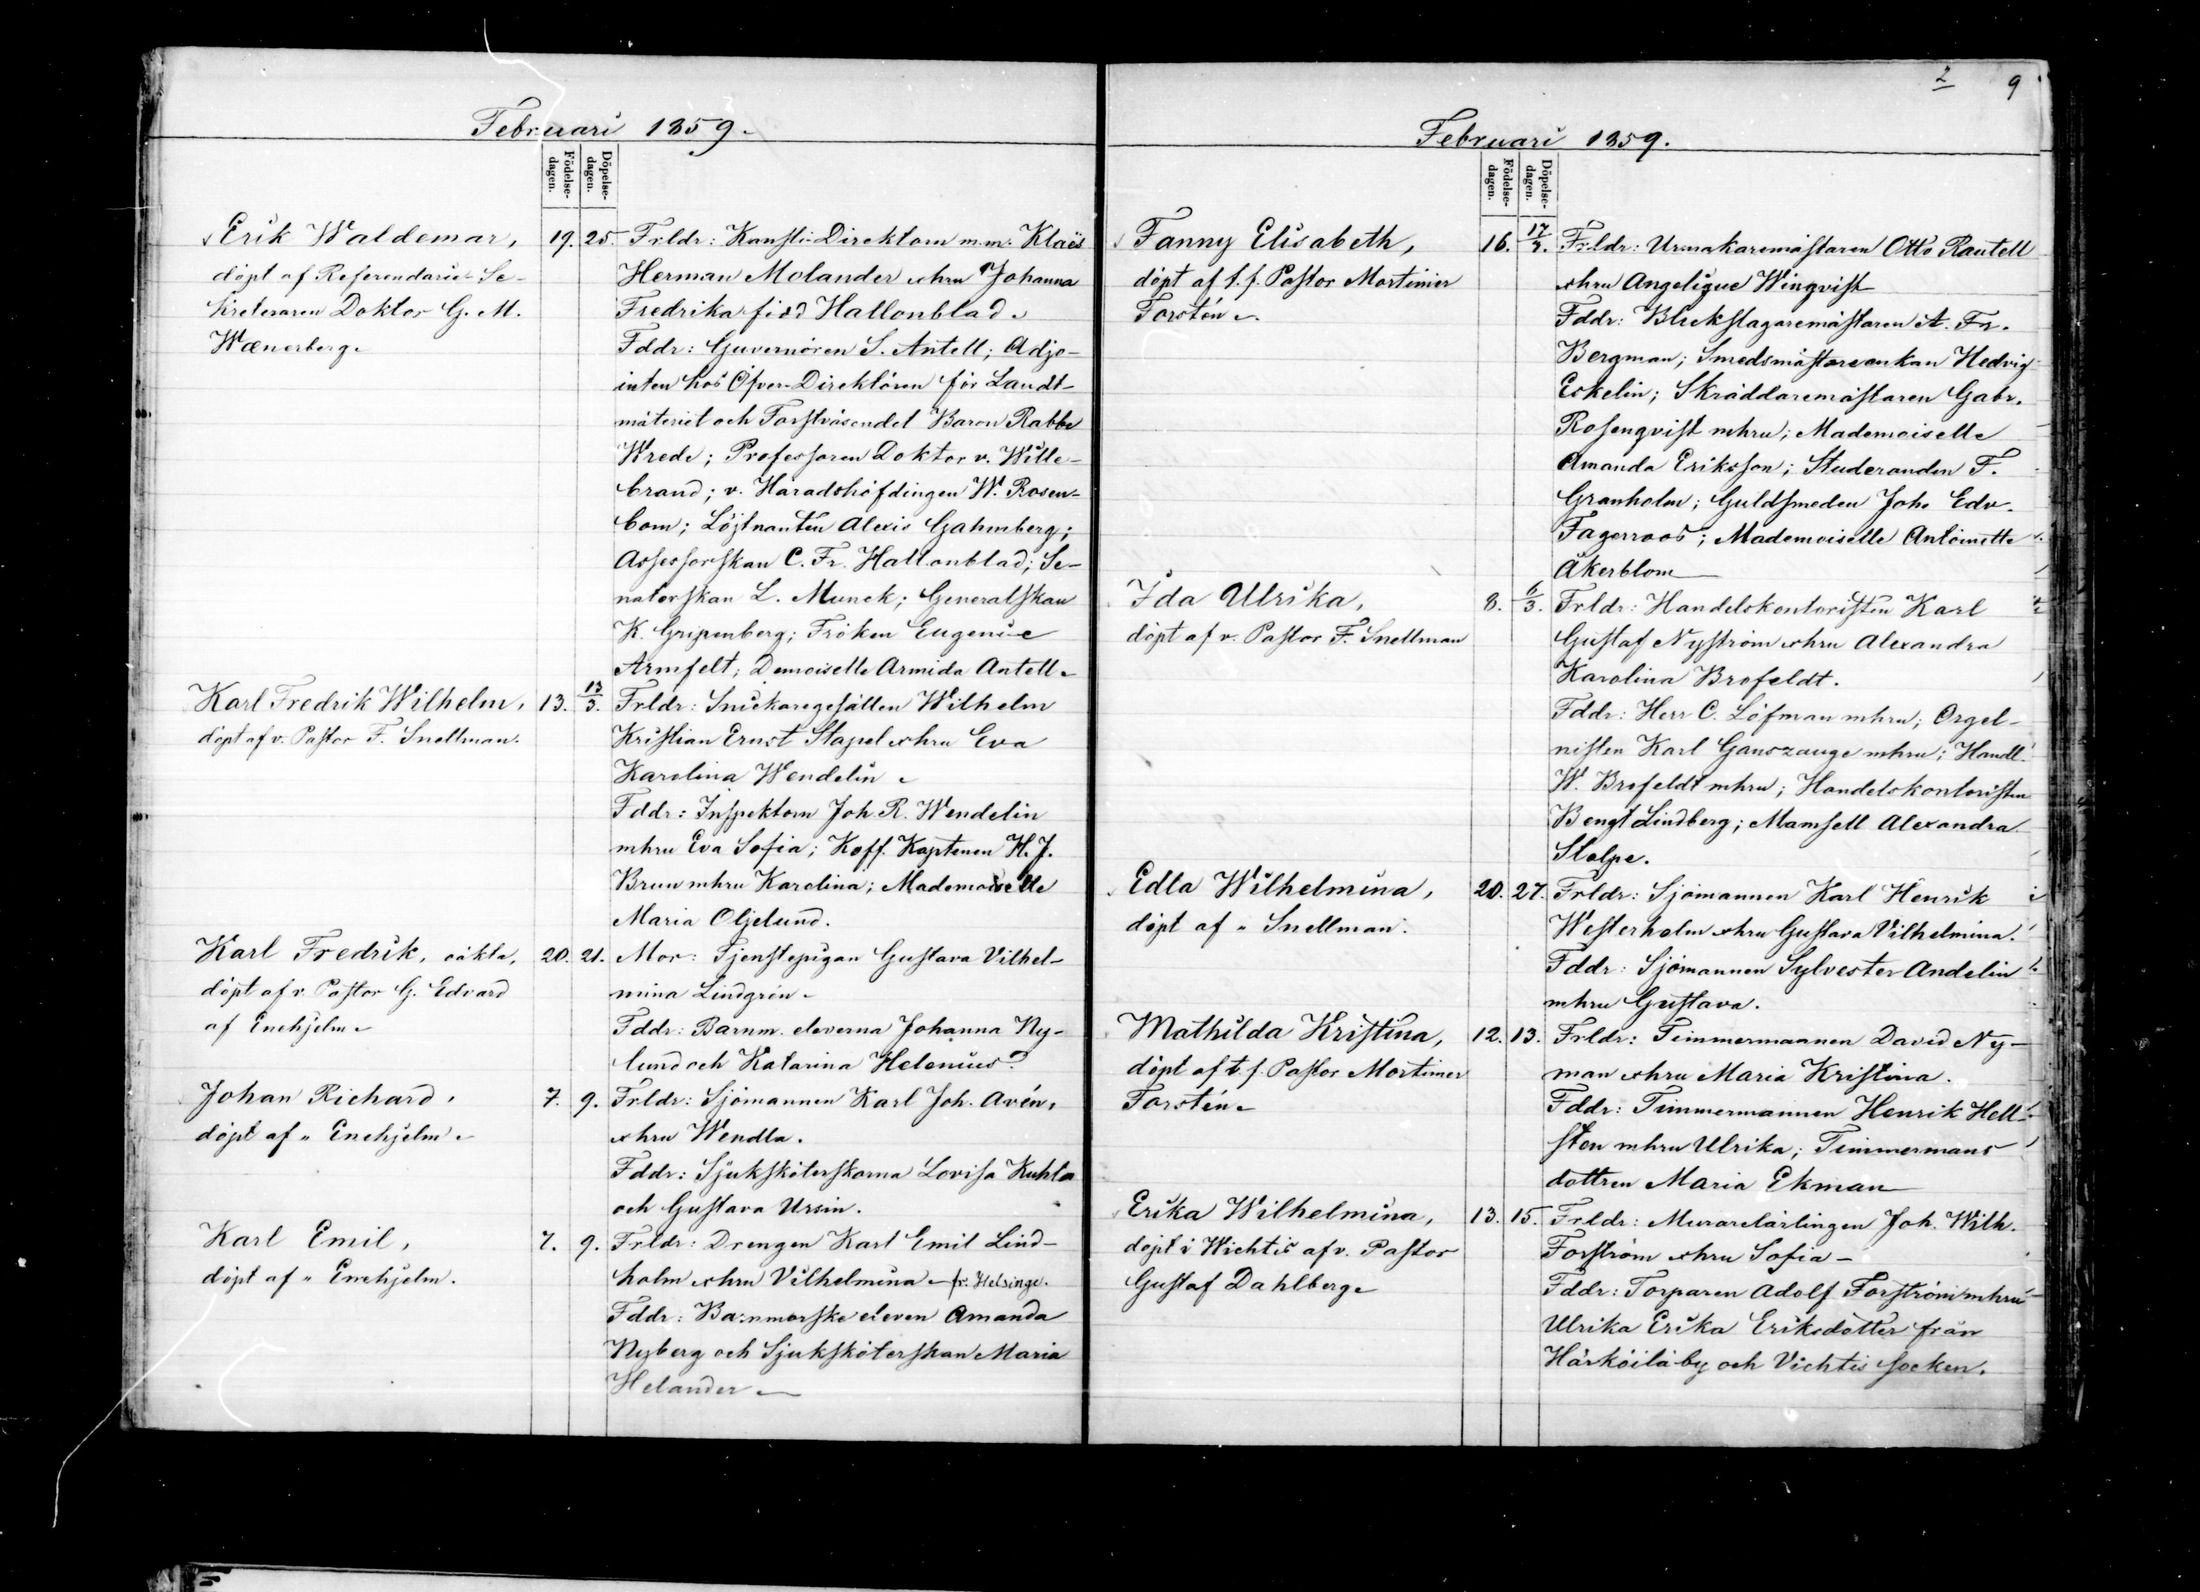 Februari 1859.
Födelse-
dagen.
Döpelse-
dagen.
Erik Waldemar, 19. 25. Frldr: Kansli-Direktorn m.m. Klaës
döpt af Referendarie-Se- Herman Molander o. hru Johanna
kreteraren Doktor G. M. Fredrika född Hallonblad.
Wænerberg. Fddr: Guvernören S. Antell; Adjo-
inten hos Öfver-Direktören för Landt-
mäteriet och Forstväsendet Baron Rabbe
Wrede; Professoren Doktor v. Wille-
brand; v. Häradshöfdingen W. Rosen-
bom; Löjtnanten Alexis Gahmberg;
Assessorskan C. Fr. Hallonblad; Se-
natorskan L. Munck; Generalskan
K. Gripenberg; Fröken Eugenie
Armfelt; Demoiselle Armida Antell.
Karl Fredrik Wilhelm, 13. 13/3. Frldr: Snickaregesällen Wilhelm
döpt af v. Pastor F. Snellman. Kristian Ernst Stapel o. hru Eva
Karolina Wendelin.
Fddr: Inspektorn Joh. R. Wendelin
m hru Eva Sofia; Koff. Kaptenen H. J.
Bruu m hru Karolina; Mademoiselle
Maria Oljelund.
Karl Fredrik, oäkta, 20. 21. Mor: Tjenstepigan Gustava Vilhel-
döpt af v. Pastor G. Edvard mina Lindgrén.
af Enehjelm. Fddr: Barnm. eleverna Johanna Ny-
lund och Katarina Helenius.
Johan Richard, 7. 9. Frldr: Sjömannen Karl Joh. Avén,
döpt af " Enehjelm. o. hru Wendla.
Fddr: Sjuksköterskorna Lovisa Kuhla
och Gustava Ursin.
Karl Emil, 7. 9. Frldr: Drengen Karl Emil Lind-
döpt af " Enehjelm. holm o. hru Vilhelmina fr. Helsinge.
Fddr: Barnmorske eleven Amanda
Nyberg och Sjuksköterskan Maria
Helander
2 9
Februari 1859.
Födelse-
dagen.
Döpelse-
dagen.
Fanny Elisabeth, 16. 17/7. Frldr: Urmakaremästaren Otto Rautell
döpt af t. f. Pastor Mortimer o. hru Angelique Wingvist
Forstén. Fddr: Blekslagaremästaren A. Fr.
Bergman; Smedsmästareenkan Hedvig
Eskelin; Skräddaremästaren Gabr.
Rosenqvist m hru; Mademoiselle
Amanda Eriksson; Studeranden F.
Granholm; Guldsmeden Joh. Edv.
Fagerroos; Mademoiselle Antoinette
Åkerblom
Ida Ulrika, 8. 6/3. Frldr: Handelskontoristen Karl
döpt af v. Pastor F. Snellman Gustaf Nyström o. hru Alexandra
Karolina Brofeldt.
Fddr: Herr C. Löfman m hru; Orgel-
nisten Karl Ganszauge m hru; Handl.
W. Brofeldt m hru; Handelskontoristen
Bengt Lindberg; Mamsell Alexandra
Stolpe.
Edla Wilhelmina, 20. 27. Frldr: Sjömannen Karl Henrik
döpt af " Snellman. Westerholm o. hru Gustava Vilhelmina.
Fddr: Sjömannen Sylvester Andelin
m hru Gustava.
Mathilda Kristina, 12. 13. Frldr: Timmermannen David Ny-
döpt af t. f. Pastor Mortimer man o. hru Maria Kristina.
Forstén. Fddr: Timmermannen Henrik Hell-
sten m hru Ulrika; Timmermans
dottren Maria Ekman
Erika Wilhelmina, 13. 15. Frldr: Murarelärlingen Joh. Wilh.
döpt i Wichtis af v. Pastor Forström o. hru Sofia
Gustaf Dahlberg. Fddr: Torparen Adolf Forström m hru
Ulrika Erika Eriksdotter från
Härköilä by och Vichtis socken.